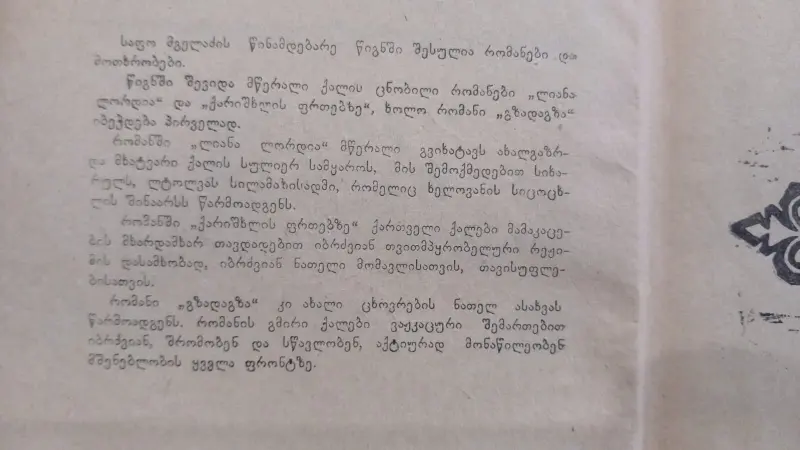 საფო მგელაძის წინამდებარე წიგნში შესულია რომანები და
მოთხრობები.
წიგნში შევიდა მწერალი ქალის ცნობილი რომანები „ლიანა
ლორდია“ და „ქარიშხლის ფრთებზე“, ხოლო რომანი „გზადაგზა“
იბეჭდება პირველად.
რომანში „ლიანა ლორდია“ მწერალი გვიხატავს ახალგაზრ-
და მხატვარი ქალის სულიერ სამყაროს, მის შემოქმედებით სიხა-
რულს, ლტოლვას სილამაზისადმი, რომელიც ხელოვანის სიცოცხ-
ლის შინაარსს წარმოადგენს.
რომანში „ქარიშხლის ფრთებზე“ ქართველი ქალები მამაკაცე-
ბის მხარდამხარ თავდადებით იბრძვიან თვითმპყრობელური რეჟი-
მის დასამხობად, იბრძვიან ნათელი მომავლისათვის, თავისუფლე-
ბისათვის.
რომანი „გზადაგზა“ კი ახალი ცხოვრების ნათელ ასახვას
წარმოადგენს. რომანის გმირი ქალები ვაჟკაცური შემართებით
იბრძვიან, შრომობენ და სწავლობენ, აქტიურად მონაწილეობენ
მშენებლობის ყველა ფრონტზე.